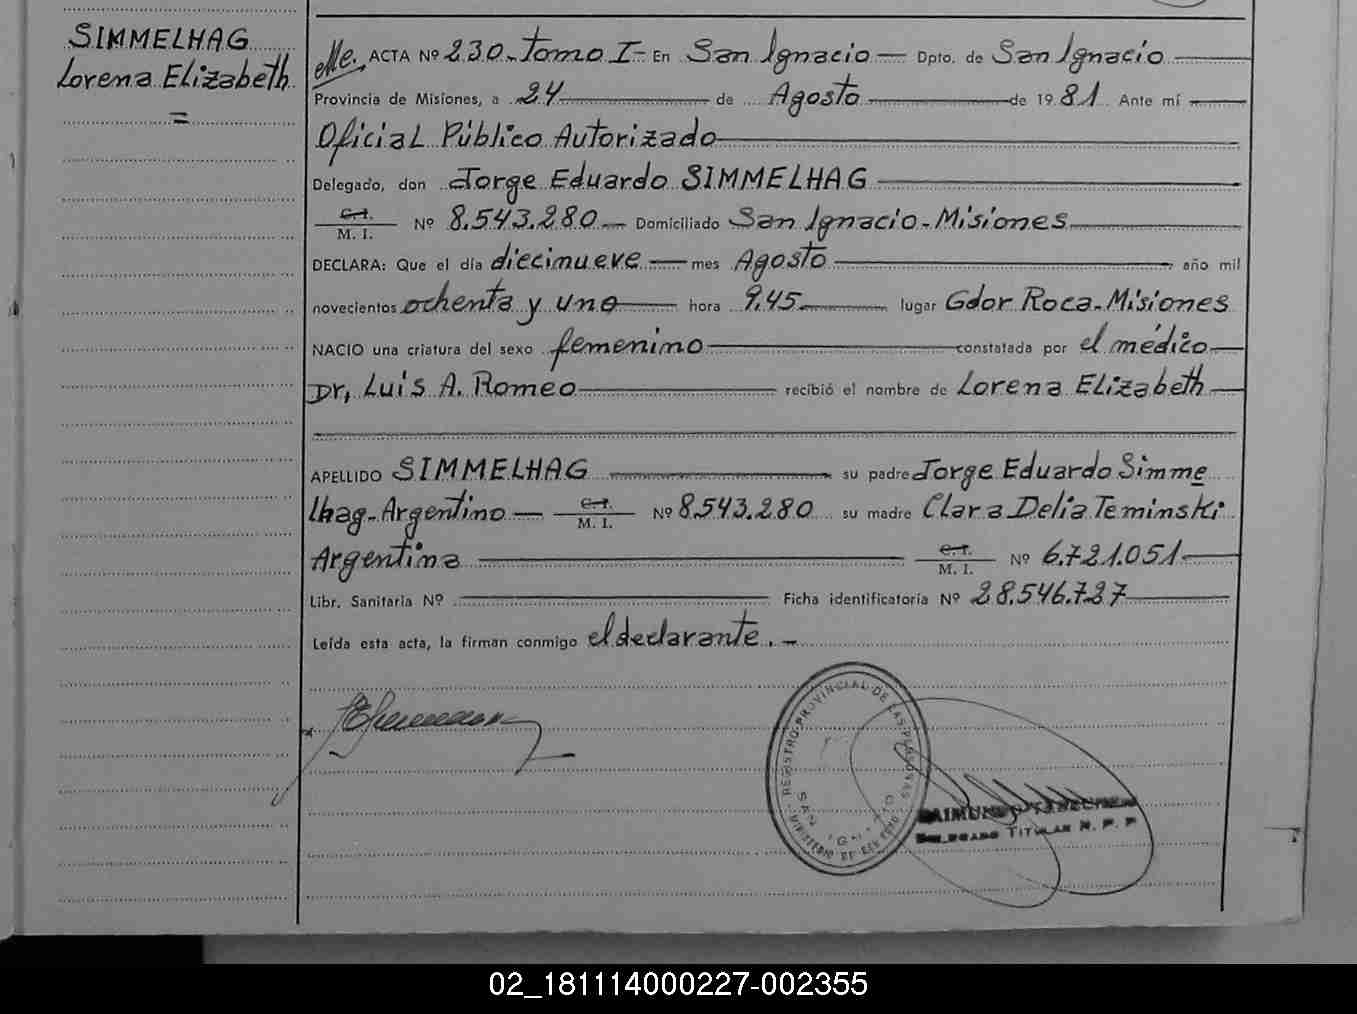 SIMMELHAG
Lorena Elizabeth
=
ACTA Nº 230 - Tomo I - En San Ignacio — Dpto. de San Ignacio
Provincia de Misiones, a 24 de Agosto de 1981 Ante mí
Oficial Público Autorizado
Delegado, don Jorge Eduardo SIMMELHAG
C. I.
M. I. Nº 8.543.280 Domiciliado San Ignacio - Misiones
DECLARA: Que el día diecinueve mes Agosto año mil
novecientos ochenta y uno hora 9,45 lugar Gdor Roca - Misiones
NACIO una criatura del sexo femenino constatada por el médico
Dr, Luis A. Romeo recibió el nombre de Lorena Elizabeth
APELLIDO SIMMELHAG su padre Jorge Eduardo Simme
lhag - Argentino — C. I. M. I. Nº 8.543.280 su madre Clara Delia Teminski
Argentina C. I. M. I. Nº 6.721.051
Libr. Sanitaria Nº Ficha identificatoria Nº 28.546.727
Leída esta acta, la firman conmigo el declarante. -
REGISTRO PROVINCIAL DE LAS PERSONAS
SAN IGNACIO
MINISTERIO DE
DELEGADO TITULAR R. P. P.
02_181114000227-002355